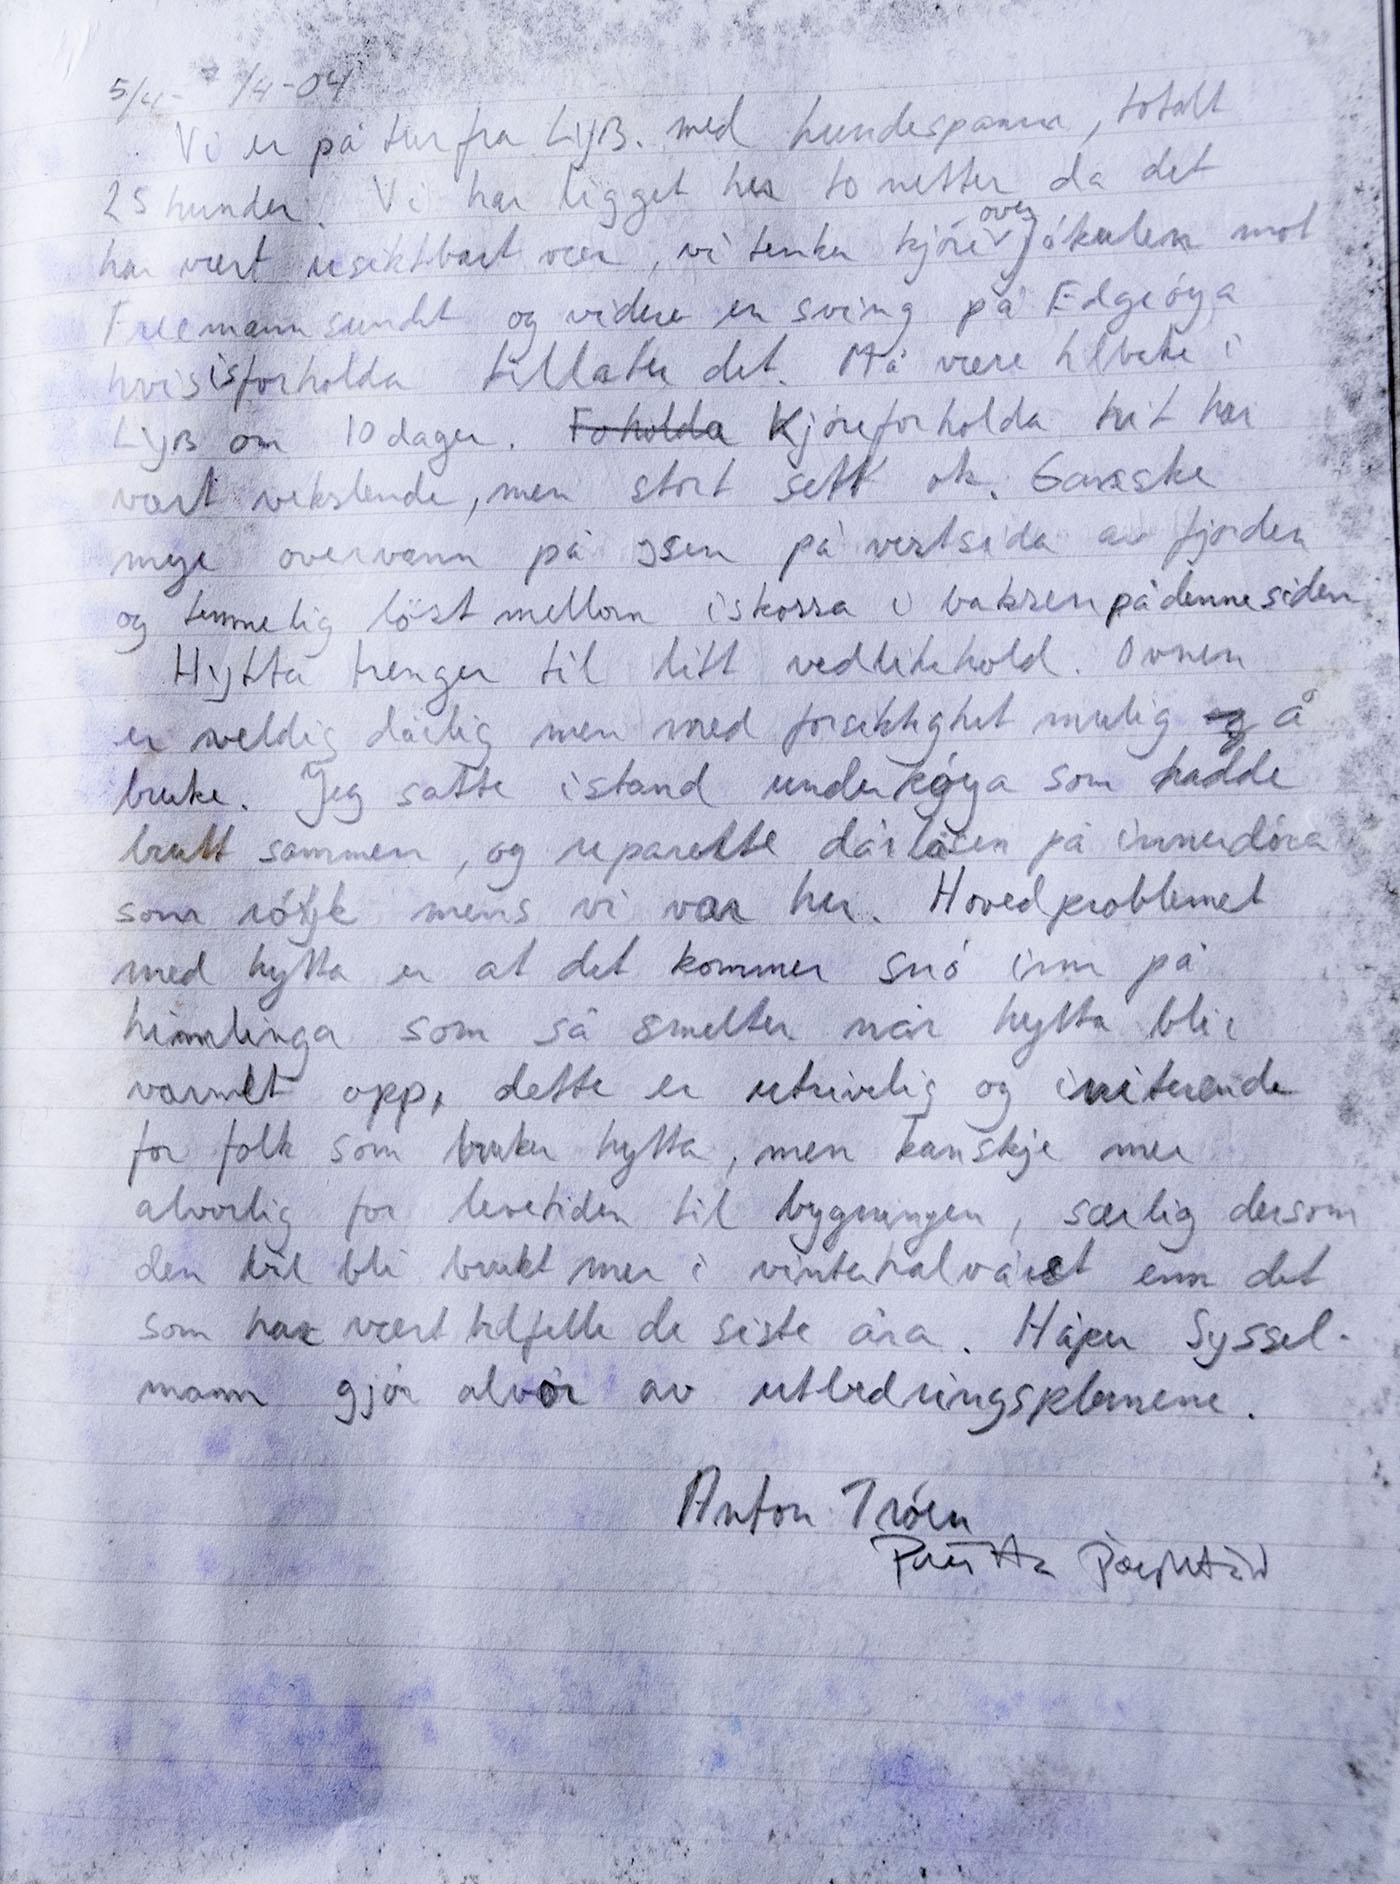 5/4 - 7/4-04
Vi er på tur fra LYB. med hundespann, totalt
25 hunder. Vi har ligget her to netter da det
har vært usiktbart vær, vi tenker kjøre over Jökulen mot
Freemannsundet og videre en sving på Edgeøya
hvis isforholda tillater det. Må være tilbake i
LYB om 10 dager. Foholda Kjøreforholda hit har
vært vekslende, men stort sett ok. Ganske
mye overvann på isen på vestsida av fjorden
og temmelig løst mellom iskossa i baksen på denne siden
Hytta trenger til litt vedlikehold. Ovnen
er veldig dårlig men med forsiktighet mulig og å
bruke. Jeg satte istand underkøya som hadde
brutt sammen, og reparette dørlåsen på innerdøra
som røyk mens vi var her. Hovedproblemet
med hytta er at det kommer snø inn på
himlinga som så smelter når hytta blir
varmet opp, dette er utrivelig og irriterende
for folk som bruker hytta, men kanskje mer
alvorlig for levetiden til bygningen, særlig dersom
den vil bli brukt mer i vinterhalvåret enn det
som har vært tilfelle de siste åra. Håper Syssel-
mann gjør alvor av utbedringsplanene.
Anton Trøen